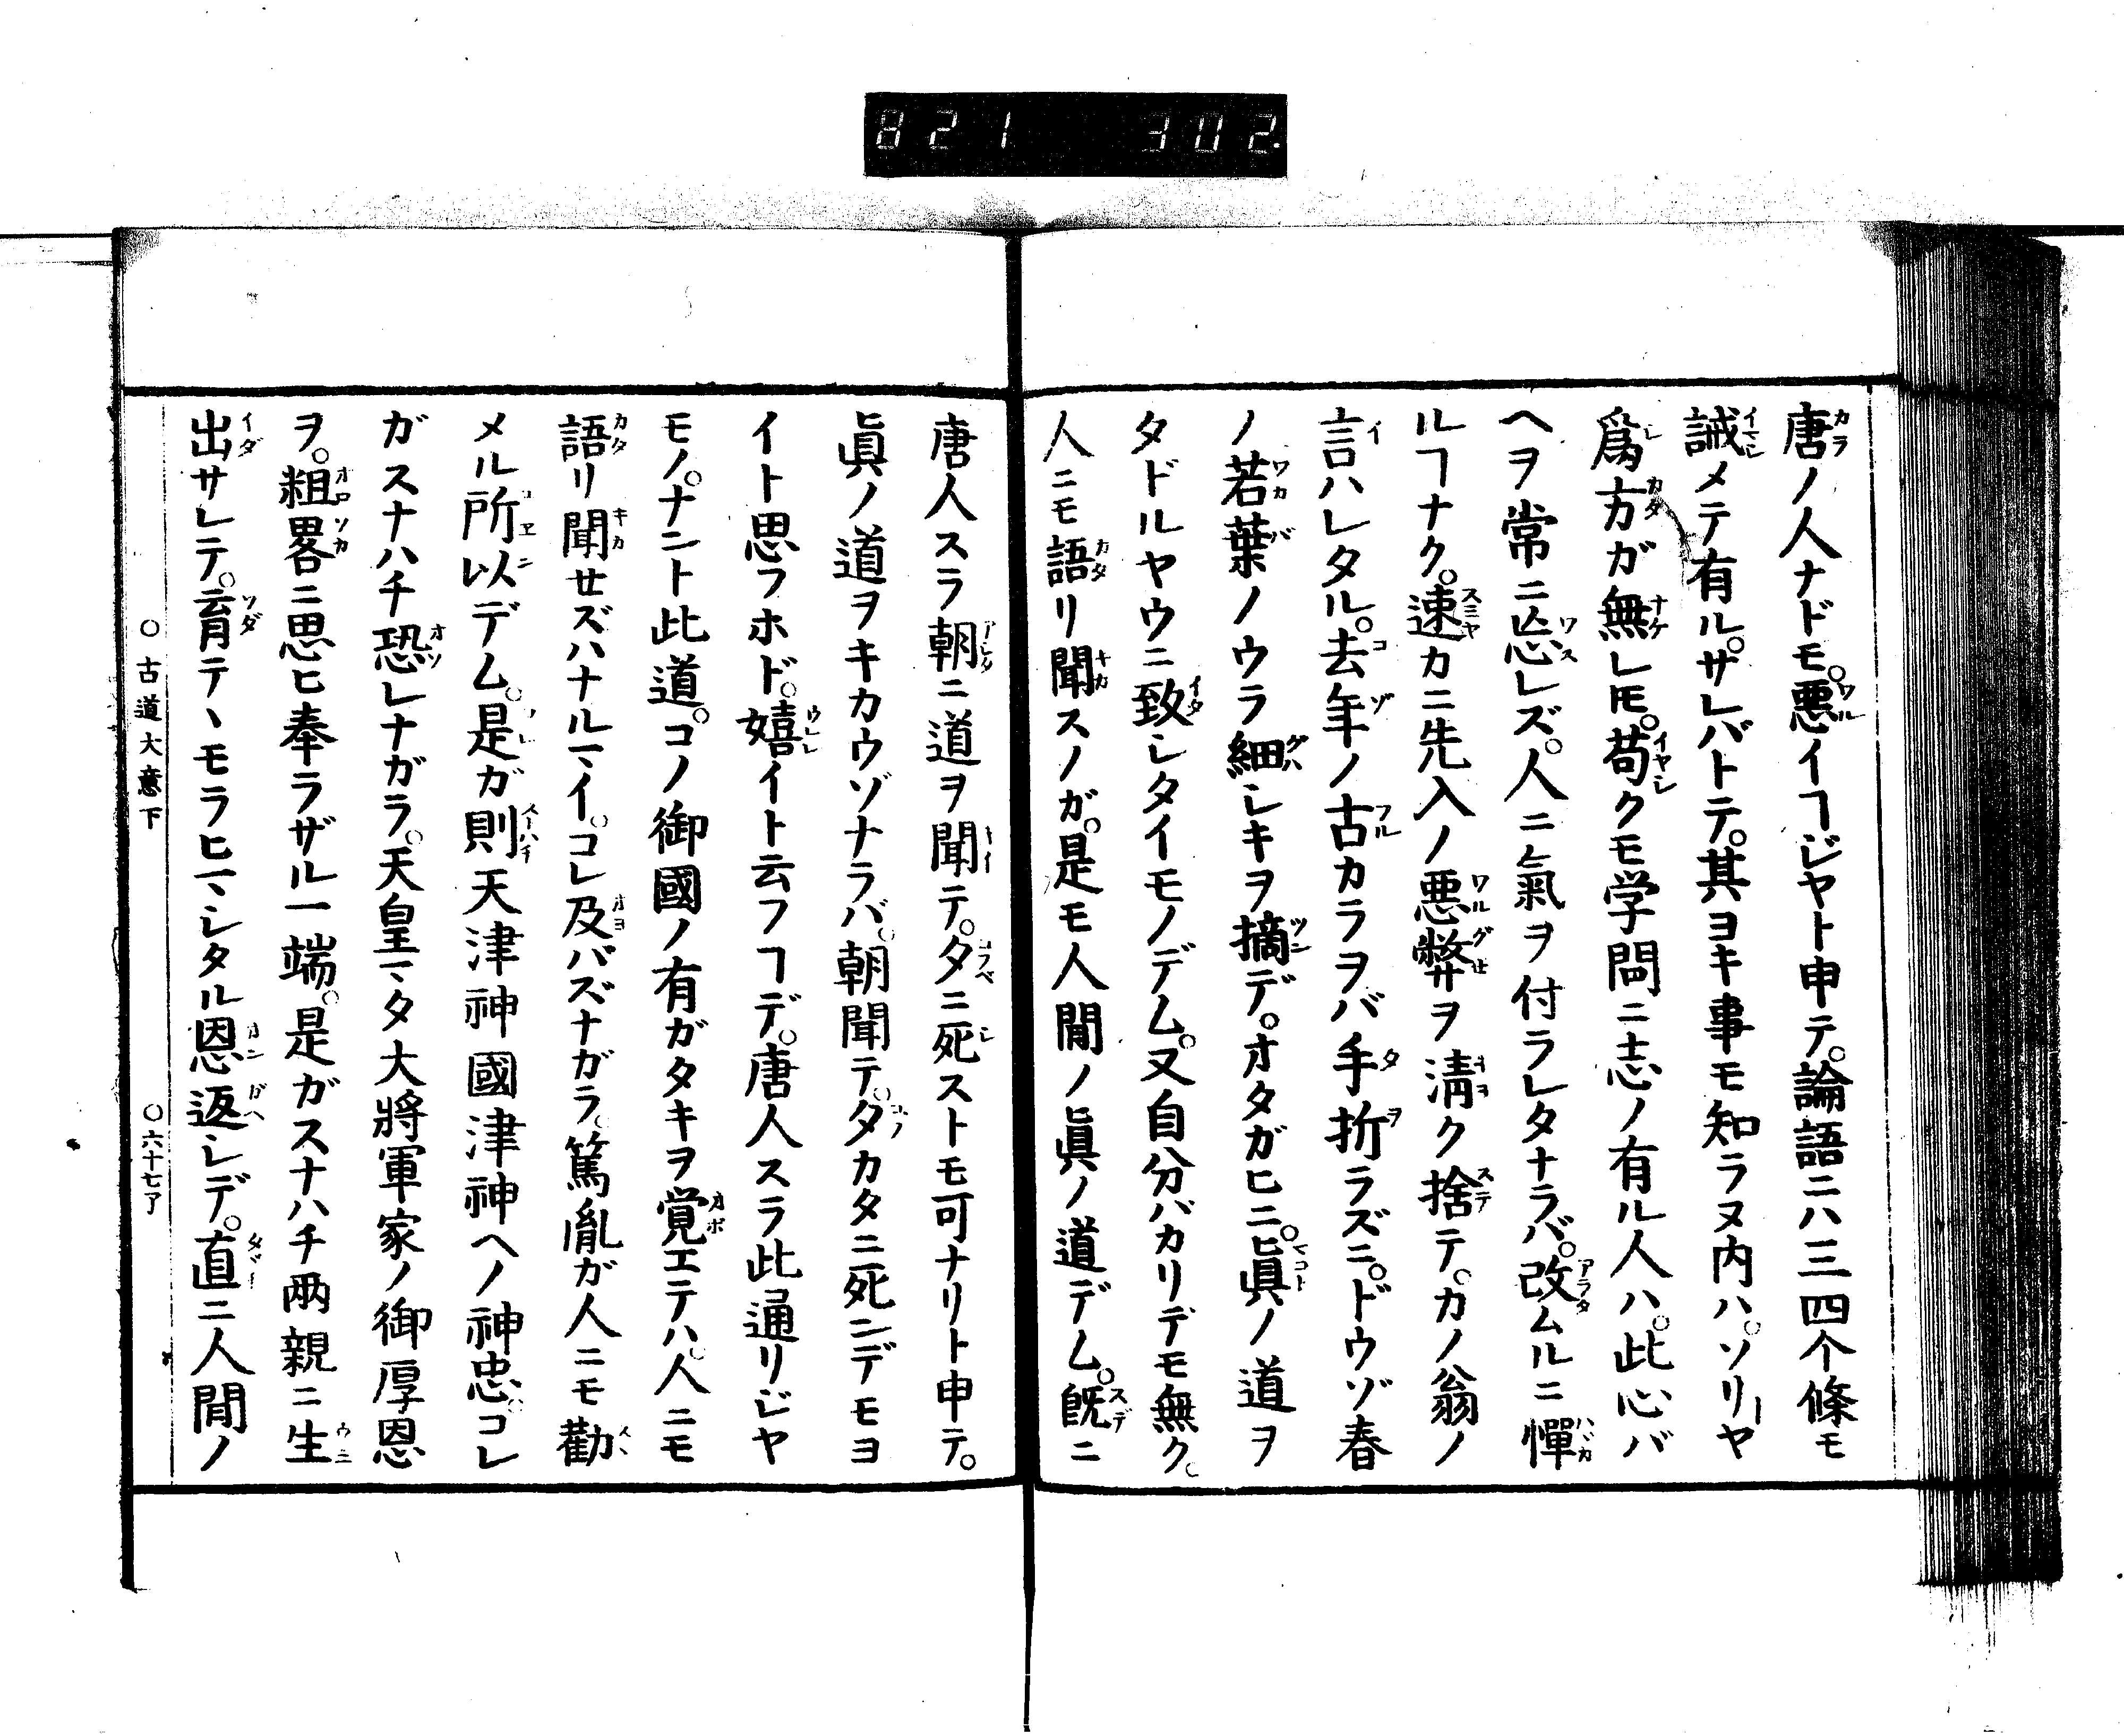 821 302.
唐ノ人ナドモ。悪イヿジヤト申テ。論語ニハ三四个條モ
誡メテ有ル。サレバトテ。其ヨキ事モ知ラヌ内ハ。ソリヤ
爲方ガ無レ𪜈。苟クモ学問ニ志ノ有ル人ハ。此心バ
ヘヲ常ニ忘レズ。人ニ氣ヲ付ラレタナラバ。改ムルニ憚
ルヿナク。速カニ先入ノ悪弊ヲ淸ク捨テ。カノ翁ノ
言ハレタル。去年ノ古カラヲバ手折ラズニ。ドウゾ春
ノ若葉ノウラ細シキヲ摘デ。オタガヒニ。眞ノ道ヲ
タドルヤウニ致シタイモノデム。又自分バカリデモ無ク。
人ニモ語リ聞スノガ。是モ人間ノ眞ノ道デム。既ニ
唐人スラ朝ニ道ヲ聞テ。夕ニ死ストモ可ナリト申テ。
眞ノ道ヲキカウゾナラバ。朝聞テ。夕カタニ死ンデモヨ
イト思フホド。嬉イト云フヿデ。唐人スラ此通リジヤ
モノ。ナント此道。コノ御國ノ有ガタキヲ覚エテハ。人ニモ
語リ聞せズハナルマイ。コレ及バズナガラ。篤胤ガ人ニモ勸
メル所以デム。是ガ則天津神國津神ヘノ神忠。コレ
ガスナハチ恐レナガラ。天皇マタ大將軍家ノ御厚恩
ヲ。粗畧ニ思ヒ奉ラザル一端。是ガスナハチ兩親ニ生
出サレテ。育テヽモラヒマシタル恩返シデ。直ニ人間ノ
○古道大意下 ○六十七了